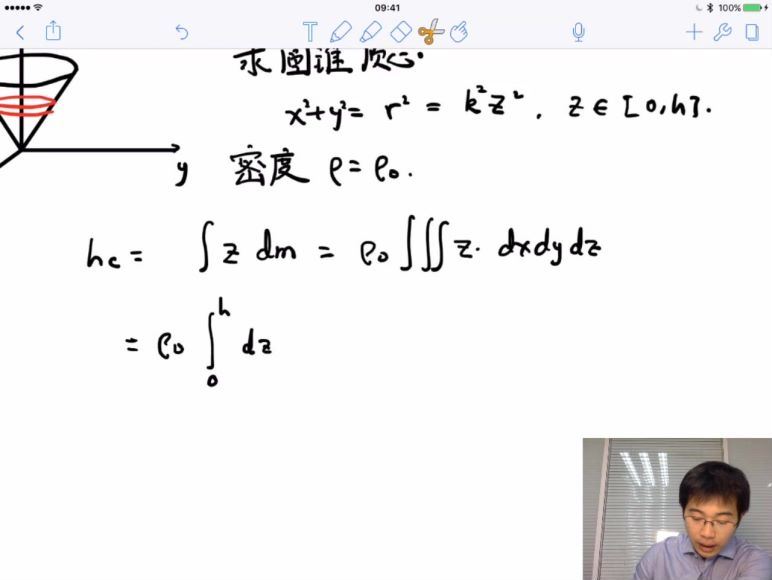 09:41
100%
求圆锥质心.
x²+y²= r² = k²z². z∈[0,h].
y 密度 ρ=ρ₀.
h_c = ∫ z dm = ρ₀ ∭ z· dxdydz
= ρ₀ ∫₀ʰ dz